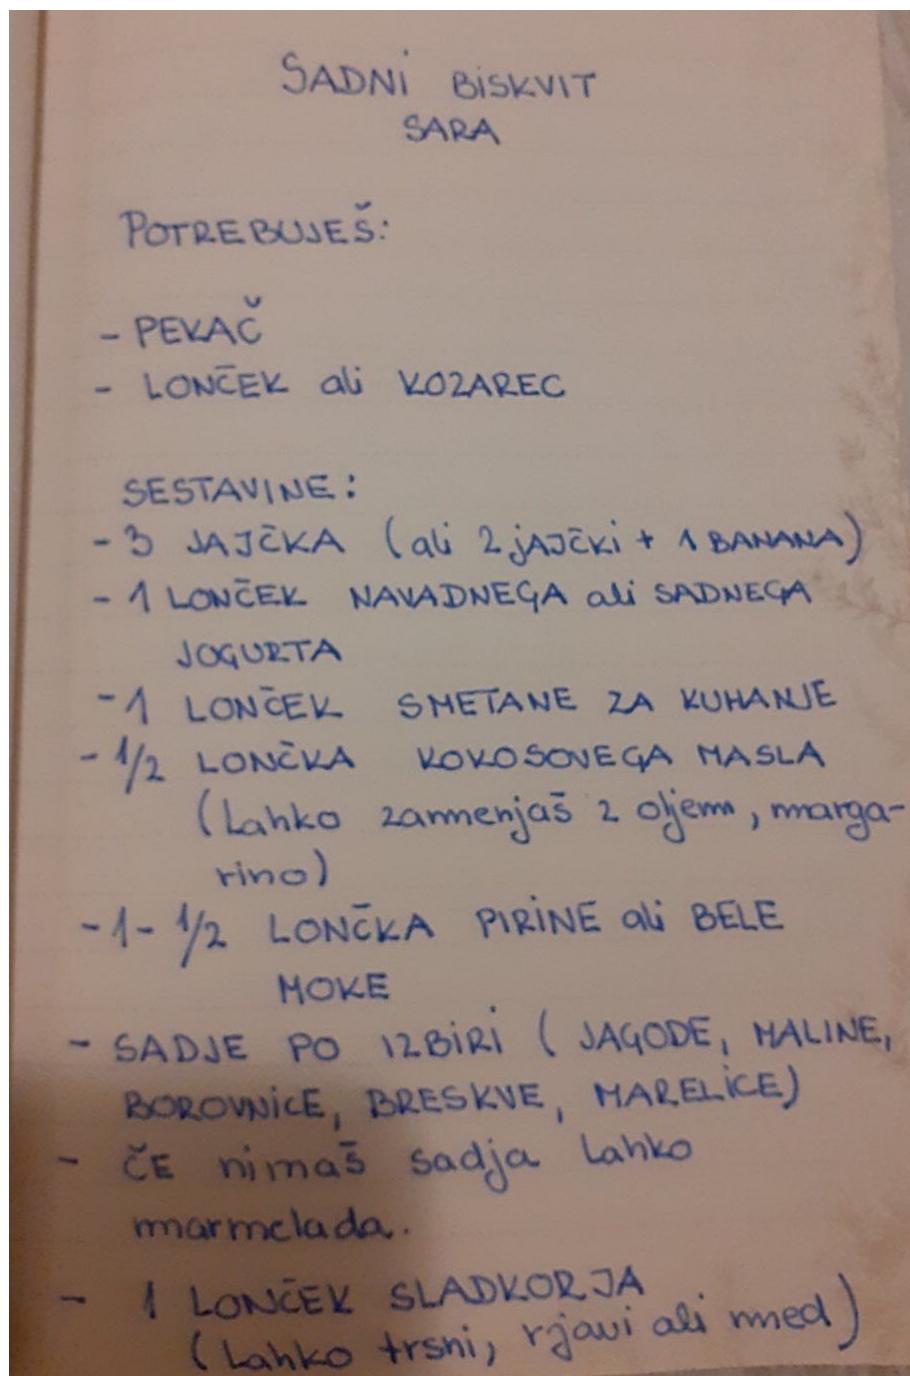 SADNI BISKVIT
SARA
POTREBUJEŠ:
- PEKAČ
- LONČEK ali KOZAREC
SESTAVINE:
- 3 JAJČKA (ali 2 jAJČKi + 1 BANANA)
- 1 LONČEK NAVADNEGA ali SADNEGA
JOGURTA
- 1 LONČEK SMETANE ZA KUHANJE
- 1/2 LONČKA KOKOSOVEGA MASLA
(Lahko zammenjaš z oljem, marga-
rino)
- 1 - 1/2 LONČKA PIRINE ali BELE
MOKE
- SADJE PO IZBIRI ( JAGODE, MALINE,
BOROVNICE, BRESKVE, MARELICE)
- ČE nimaš sadja Lahko
marmelada.
- 1 LONČEK SLADKORJA
(Lahko trsni, rjavi ali med)